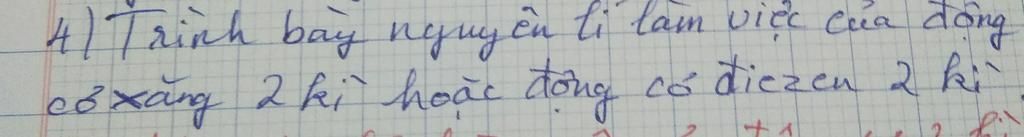 4) Trình bày nguyên lí làm việc của động
cơ xăng 2 kì hoặc động cơ điezen 2 kì